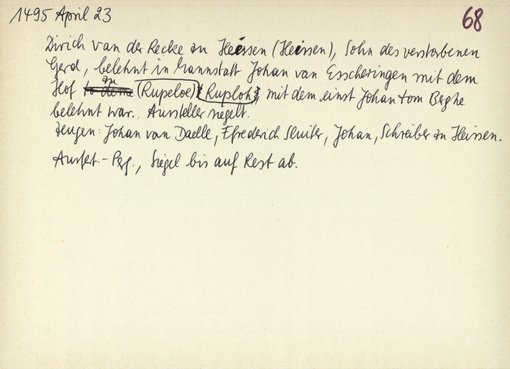 1495 April 23
68
Dirich van der Recke zu Heissen (Heissen), Sohn des verstorbenen
Gerd, belehnt in Mannstatt Johan van Esscheringen mit dem
Hof to deme zu (Rupeloe) (Ruploh), mit dem einst Johan tom Berghe
belehnt war. Aussteller siegelt.
Zeugen: Johan van Daelle, Efrederich Sluiter, Johan, Schreiber zu Heissen.
Ausfert.-Perg., Siegel bis auf Rest ab.